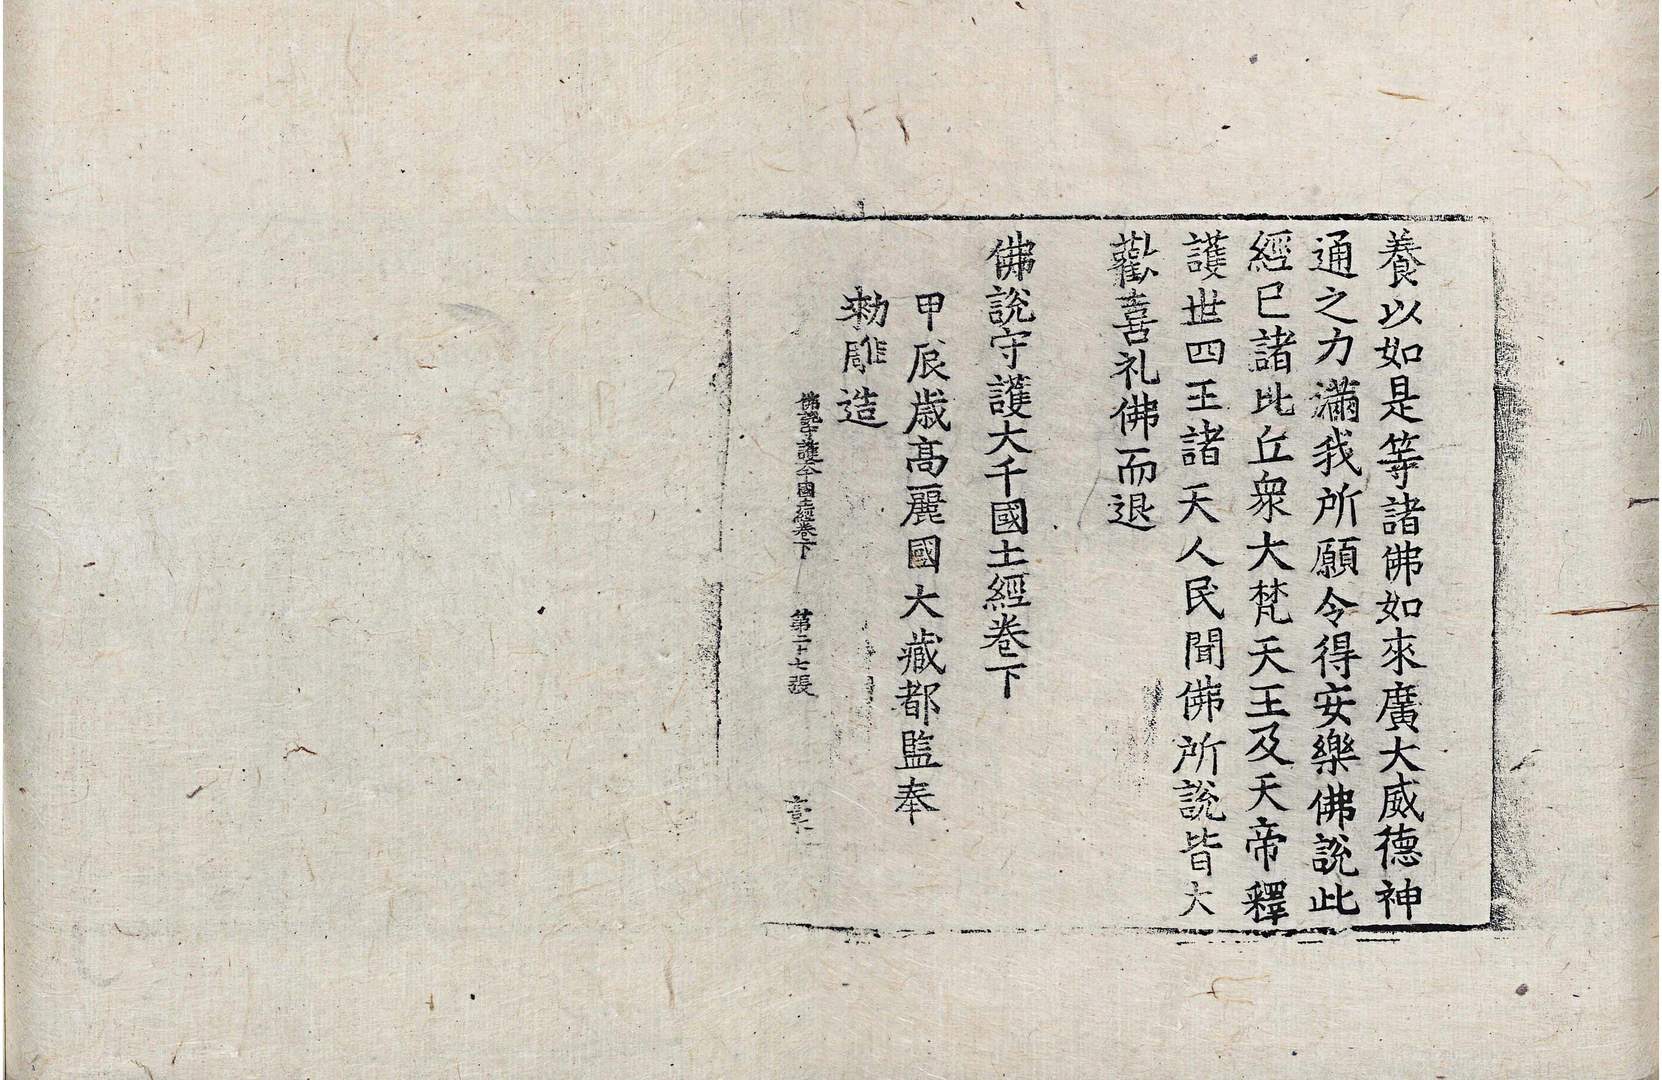 養以如是等諸佛如來廣大威德神
通之力滿我所願令得安樂佛說此
經已諸比丘衆大梵天王及天帝釋
護世四王諸天人民聞佛所說皆大
歡喜礼佛而退
佛說守護大千國土經卷下
甲辰歲高麗國大藏都監奉
勅雕造
佛說守護千國土經卷下 第二十七張